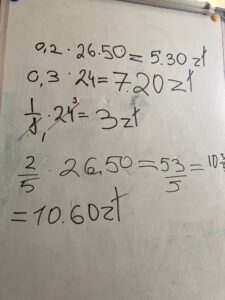 0,2 · 26.50 = 5.30 zł
0,3 · 24 = 7.20 zł
1/8 1 · 24 3 = 3 zł
2/5 · 26.50 = 53/5 = 10
= 10.60 zł